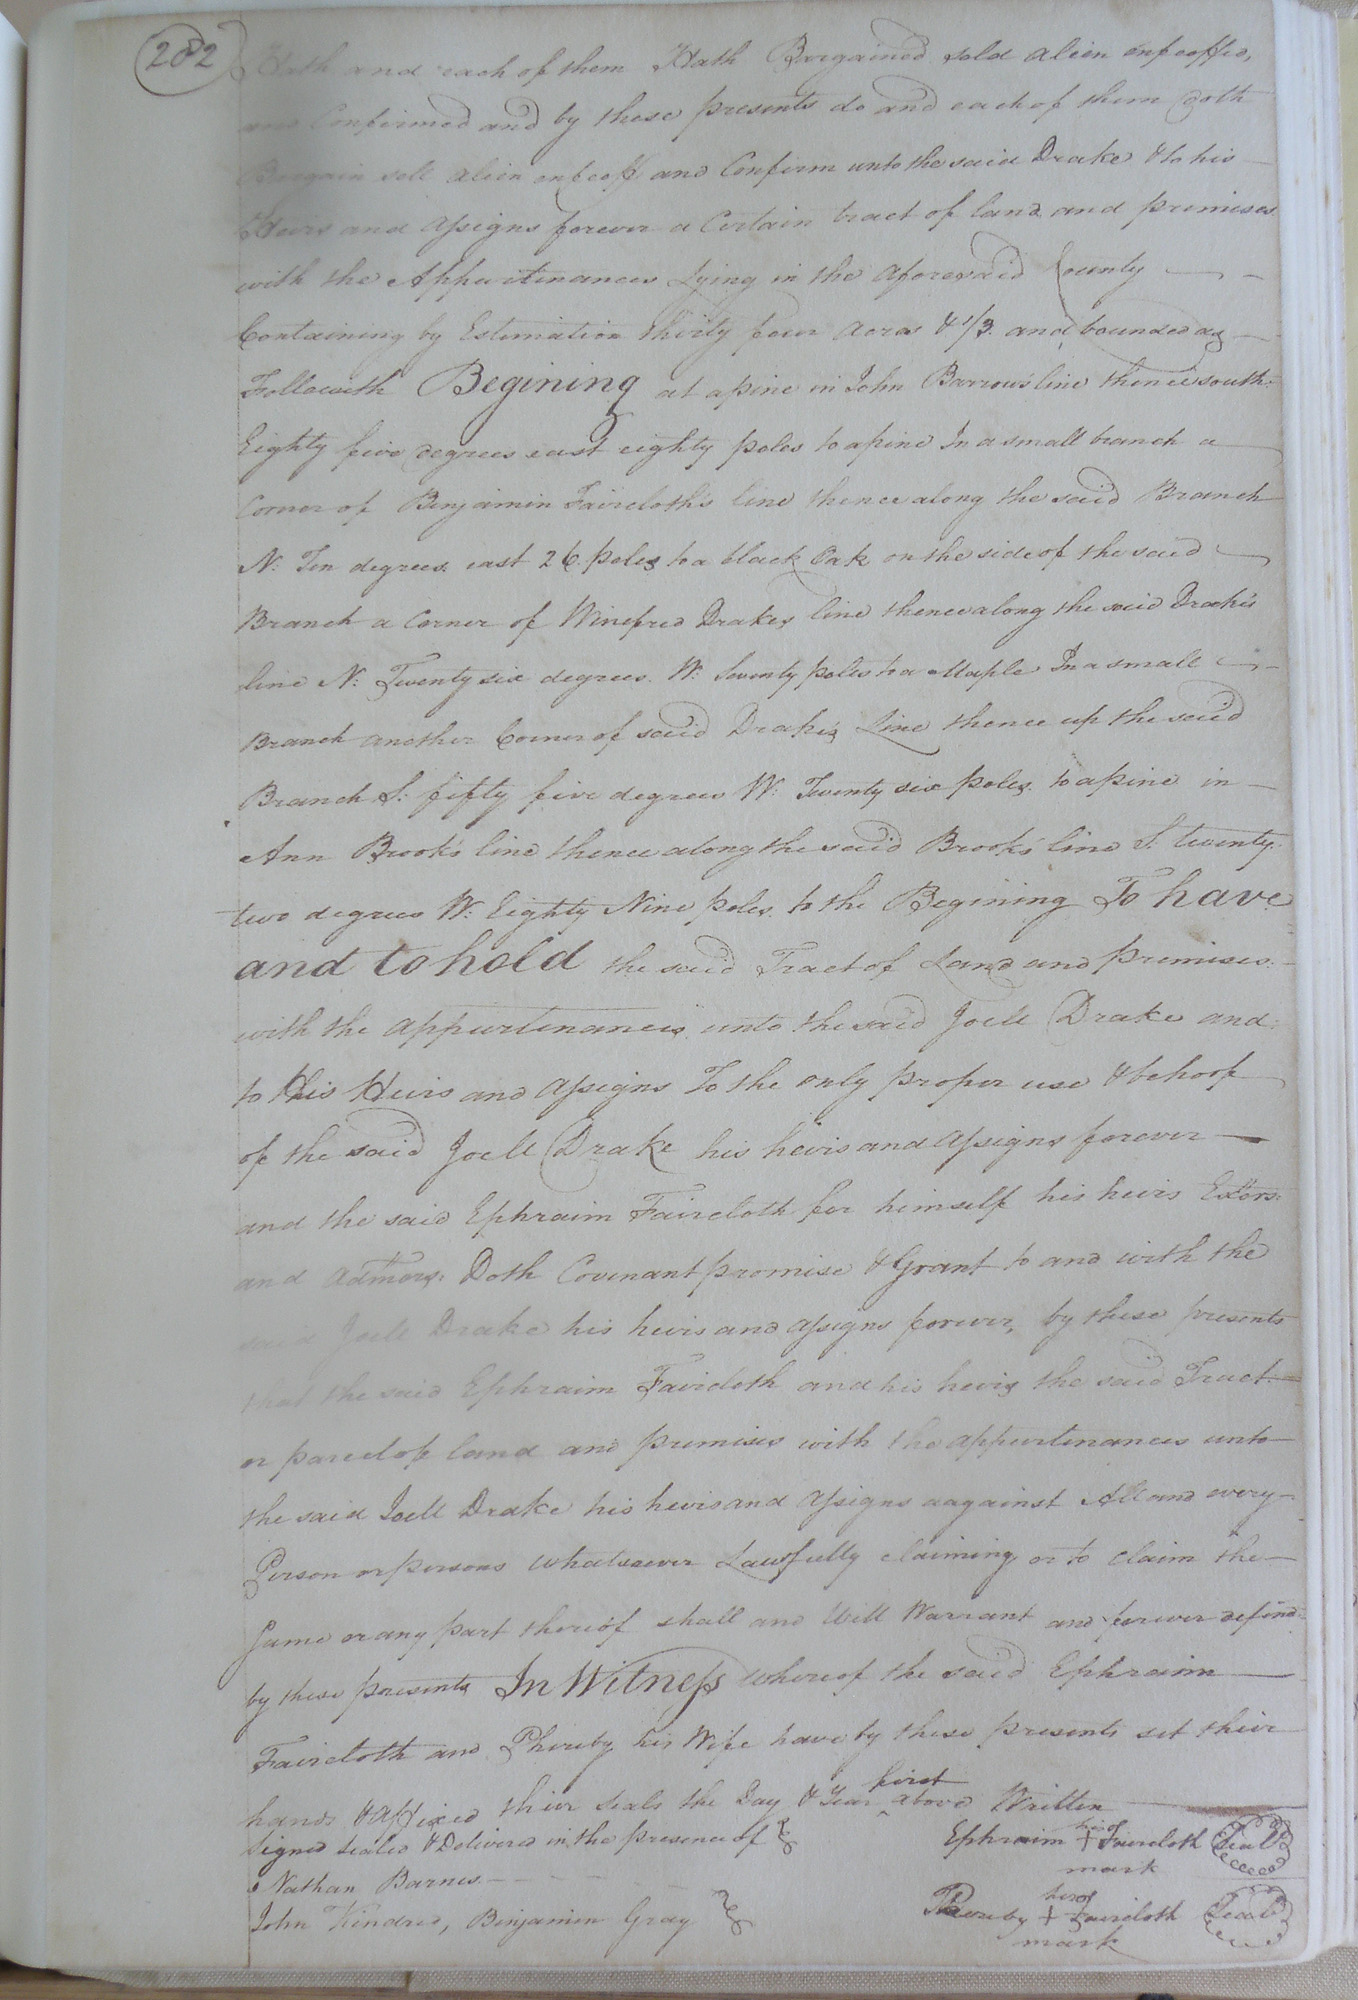 282
Hath and each of them Hath Bargained sold alien enfeoffed,
and Confirmed and by these presents do and each of them doth
Bargain sell alien enfeoff and Confirm unto the said Drake & to his
Heirs and assigns forever a Certain tract of land and premises
with the Appurtinances Lying in the aforesaid County
Containing by Estimation thirty four acres & 1/3. and bounded as
Followith Begining at a pine in John Barrow's line thence south
Eighty five degrees east eighty poles to a pine In a small branch a
Corner of Benjamin Faircloth's line thence along the said Branch
N: Ten degrees east 26 poles to a black Oak on the side of the said
Branch a Corner of Winefred Drakes line thence along the said Drake's
line N: Twenty six degrees. W: Seventy poles to a Maple In a small
Branch another Corner of said Drake's Line thence up the said
Branch S: fifty five degrees W: Twenty six poles to a pine in
Ann Brook's line thence along the said Brook's line S. twenty
two degrees W: Eighty Nine poles. to the Begining To have
and to hold the said Tract of Land and premises
with the appurtinances unto the said Joell Drake and
to His Heirs and assigns To the only proper use & behoof
of the said Joell Drake his heirs and assigns forever
and the said Ephraim Faircloth for himself his heirs Extors:
and admors: Doth Covenant promise & Grant to and with the
said Joell Drake his heirs and assigns forever, by these presents
that the said Ephraim Faircloth and his heirs the said Tract
or parcel of land and premises with the appurtinances unto
the said Joell Drake his heirs and assigns aagainst All and every
Person or persons whatsoever Lawfully claiming or to claim the
Same or any part thereof shall and Will Warrant and forever defend
by these presents In Witness whereof the said Ephraim
Faircloth and Phereby his Wife have by these presents set their
hands & affixed their seals the Day & Year first above Written
Signed sealed & Delivered in the presence of
Ephraim his + Faircloth Seal
mark
Nathan Barnes
John Kindred, Benjamin Gray
Phereby her + Faircloth Seal
mark